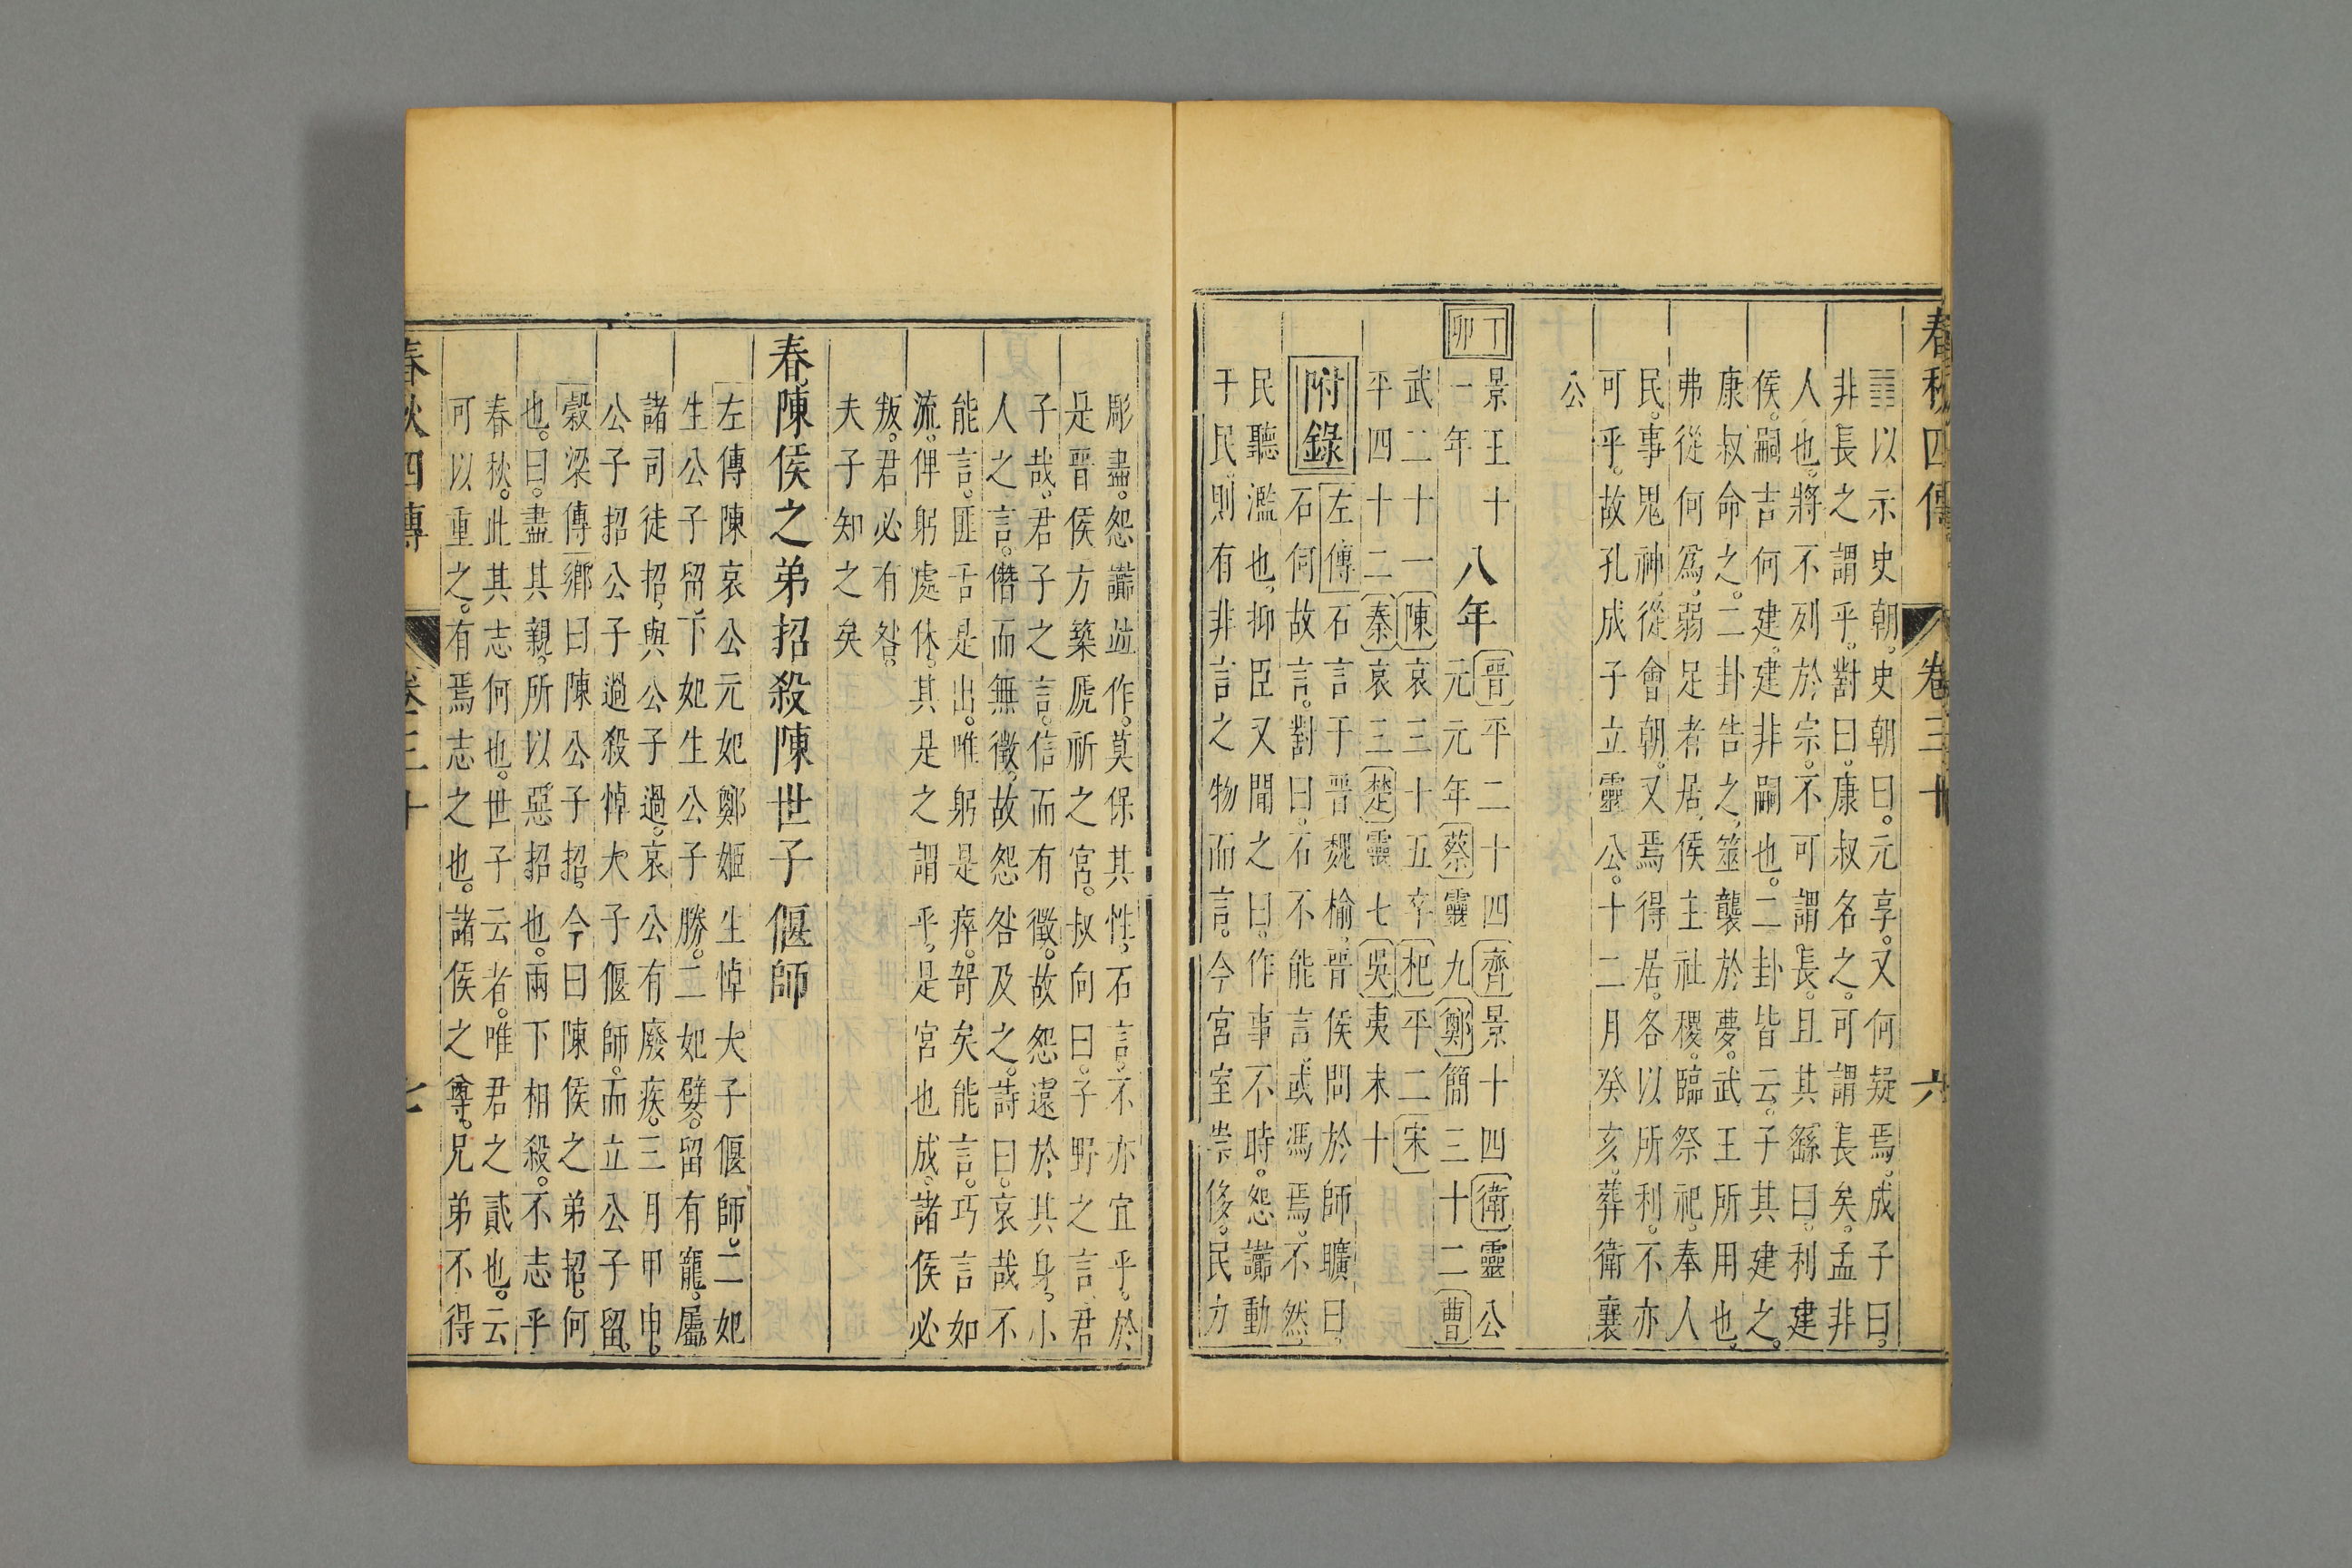 春秋四傳 卷三十 六
䷂以示史朝。史朝曰。元亨。又何疑焉。成子曰。
非長之謂乎。對曰。康叔名之。可謂長矣。孟非
人也。將不列於宗。不可謂長。且其繇曰。利建
侯。嗣吉何建。建非嗣也。二卦皆云。子其建之。
康叔命之。二卦告之。筮襲於夢。武王所用也。
弗從何爲。弱足者居。侯主社稷。臨祭祀。奉人
民。事鬼神。從會朝。又焉得居。各以所利。不亦
可乎。故孔成子立靈公。十二月癸亥。葬衛襄
公
丁卯
景王十一年
八年
晉平二十四齊景十四衛靈公
元元年蔡靈九鄭簡三十二曹
武二十一陳哀三十五𣏌平二宋
平四十二秦哀三楚靈七吳夷末十
附錄
左傳石言于晉魏榆。晉侯問於師曠曰。
石何故言。對曰。石不能言。或馮焉。不然。
民聽濫也。抑臣又聞之曰。作事不時。怨讟動
于民。則有非言之物而言。今宮室崇侈。民力
彫盡。怨讟並作。莫保其性。石言。不亦宜乎。於
是晉侯方築虒祈之宮。叔向曰。子野之言。君
子哉。君子之言。信而有徵。故怨遠於其身。小
人之言。僭而無徵。故怨咎及之。詩曰。哀哉不
能言。匪舌是出。唯躬是瘁。哿矣能言。巧言如
流。俾躬處休。其是之謂乎。是宮也成。諸侯必
叛。君必有咎。
夫子知之矣
春陳侯之弟招殺陳世子偃師
左傳陳哀公元妃鄭姬生悼大子偃師。二妃
生公子留。下妃生公子勝。二妃嬖。留有寵。屬
諸司徒招。與公子過。哀公有廢疾。三月甲申。
公子招公子過殺悼大子偃師。而立公子留。
穀梁傳鄉曰陳公子招。今曰陳侯之弟招。何
也。曰。盡其親。所以惡招也。兩下相殺。不志乎
春秋。此其志何也。世子云者。唯君之貳也。云
可以重之。有焉志之也。諸侯之尊。兄弟不得
春秋四傳 卷三十 七